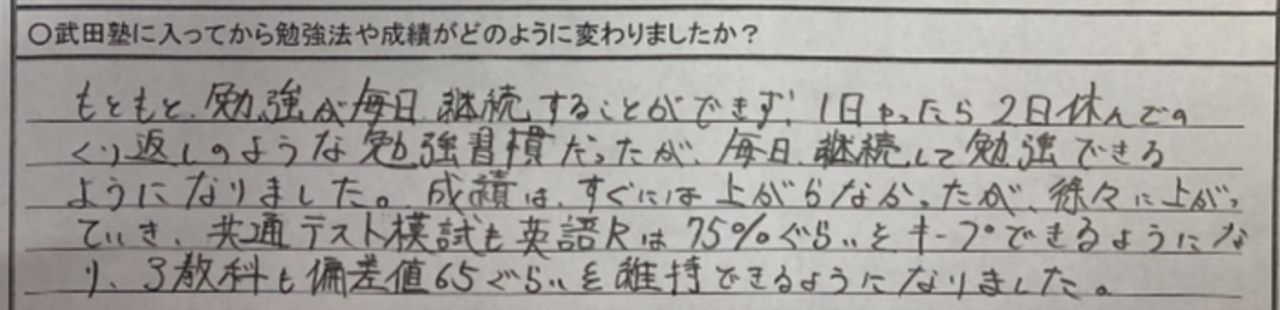 ○武田塾に入ってから勉強法や成績がどのように変わりましたか？
もともと、勉強が毎日継続することができず、1日やったら2日休んでの
くり返しのような勉強習慣だったが、毎日、継続して勉強できる
ようになりました。成績は、すぐには上がらなかったが、徐々に上がっ
ていき、共通テスト模試も英語Rは75%ぐらいをキープできるようにな
り、3教科も偏差値65ぐらいを維持できるようになりました。